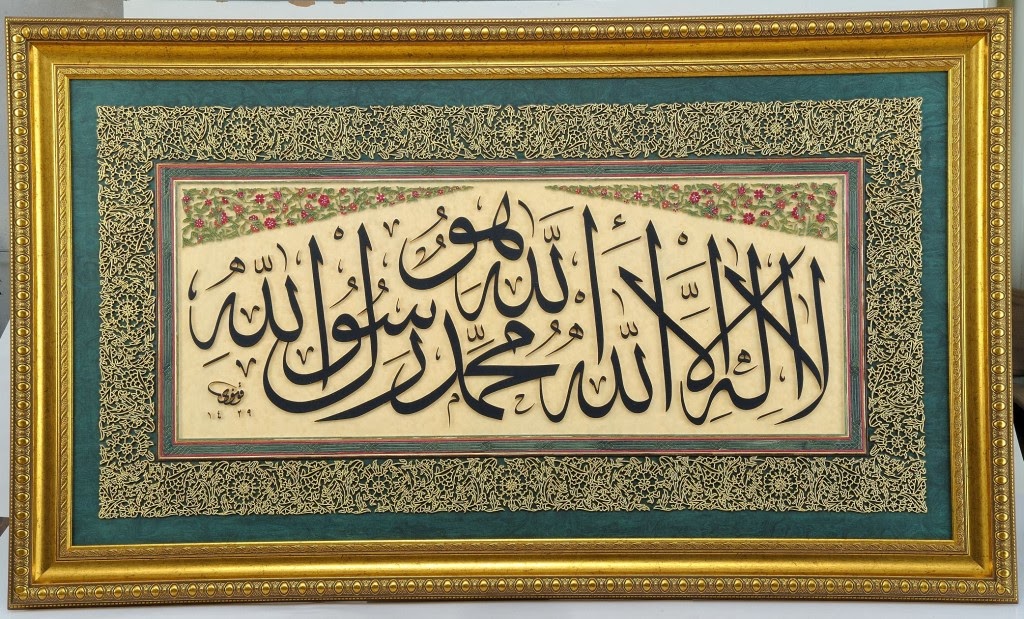 هو الله
لا إله إلا الله محمد رسول الله
١٤٢٩